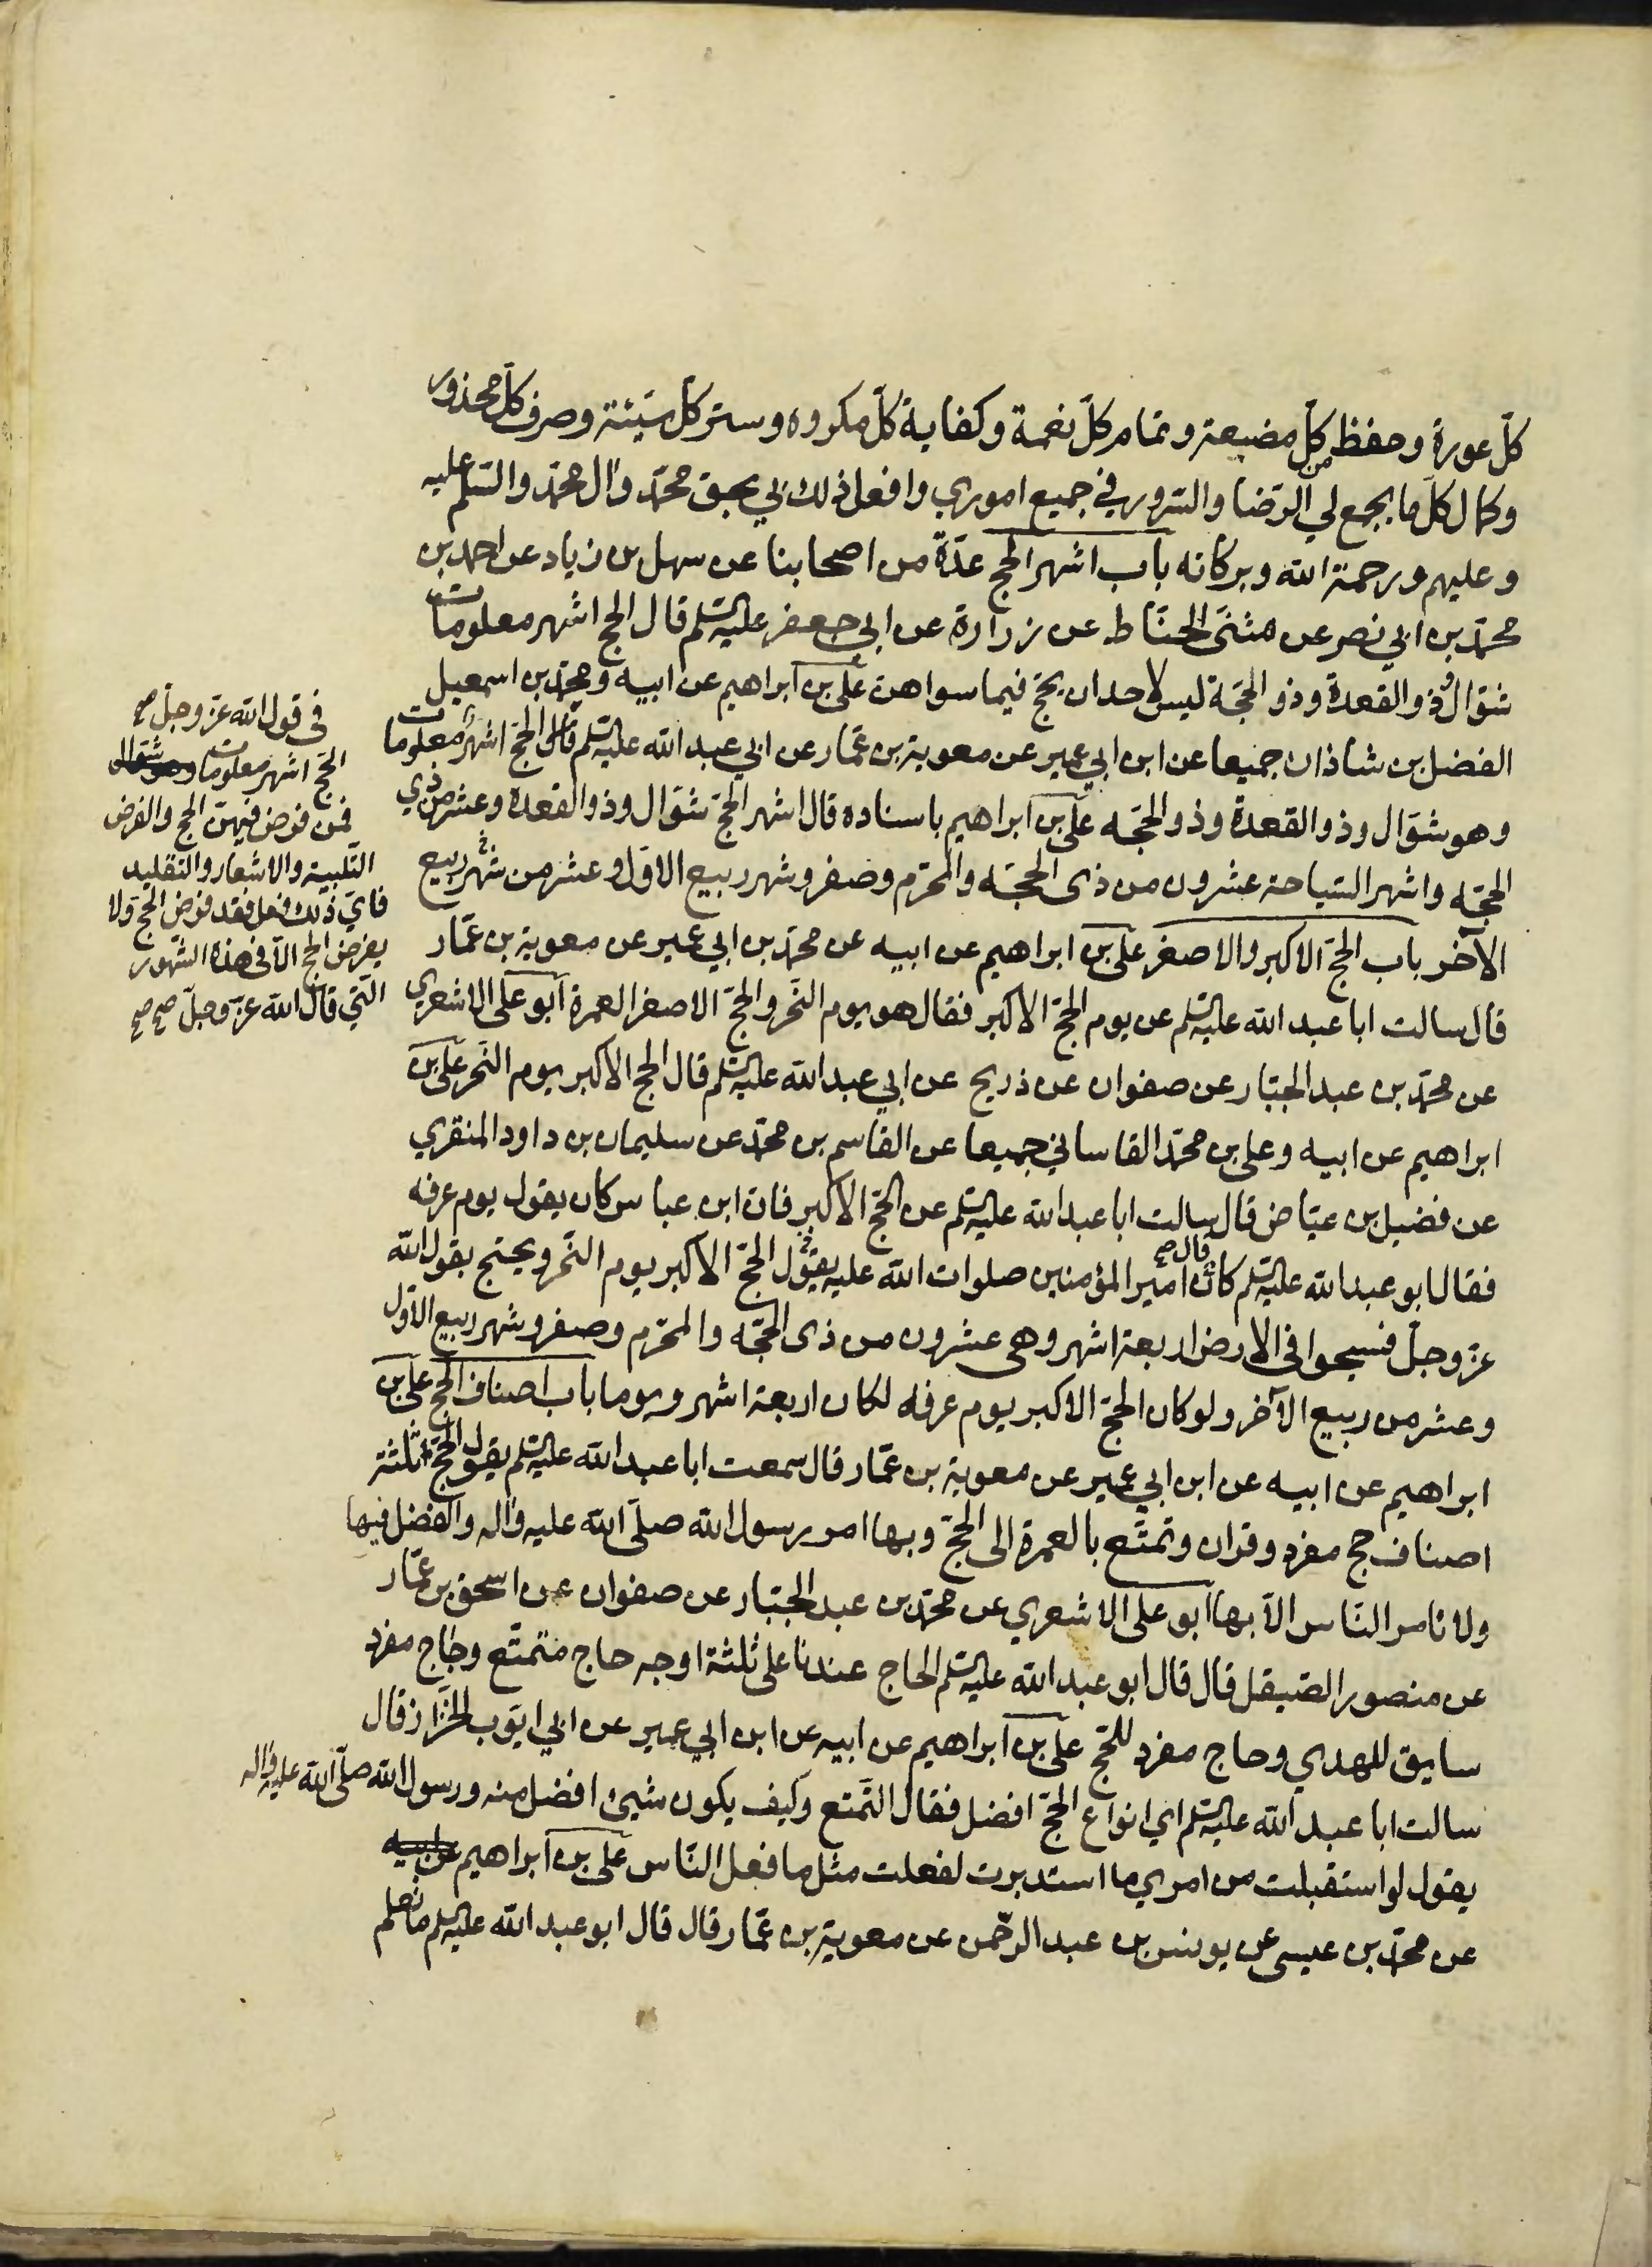 كلّ عورة وحفظ كلّ مضيعة وتمام كلّ نعمة وكفاية كلّ مكروه وستر كل سيّئة وصرف كلّ محذور
وكمال كلّ ما يجمع لي من الرّضا والسّرور في جميع اموري وافعل ذلك بي بحق محمّد وال محمّد والسّلم عليه
وعليهم ورحمة الله وبركاته باب اشهر الحج عدّة من اصحابنا عن سهل بن زياد عن احمد بن
محمّد بن ابي نصر عن مثنّى الحنّاط عن زرارة عن ابي جعفر عليه السّلم قال الحج اشهر معلومات
شوّال وذو القعدة وذو الحجّة ليس لاحد ان يحجّ فيما سواهن علي بن ابراهيم عن ابيه ومحمّد بن اسمعيل
الفضل بن شاذان جميعا عن ابن ابي عمير عن معوية بن عمّار عن ابي عبد الله عليه السّلم قال الحجّ اشهر معلومات
وهو شوّال وذو القعدة وذو الحجّه علي بن ابراهيم باسناده قال اشهر الحجّ شوّال وذو القعدة وعشر من ذي
الحجّه واشهر السّياحة عشرون من ذى الحجّه والمحرّم وصفر وشهر ربيع الاوّل وعشر من شهر ربيع
الآخر باب الحجّ الاكبر والاصغر علي بن ابراهيم عن ابيه عن محمّد بن ابي عمير عن معوية بن عمّار
قال سالت ابا عبد الله عليه السّلم عن يوم الحجّ الاكبر فقال هو يوم النّحر والحجّ الاصغر العمرة ابو علي الاشعري
عن محمّد بن عبد الجبّار عن صفوان عن ذريح عن ابي عبد الله عليه السّلم قال الحج الاكبر يوم النّحر علي بن
ابراهيم عن ابيه وعلي بن محمّد القاساني جميعا عن القاسم بن محمّد عن سليمان بن داود المنقري
عن فضيل بن عيّاض قال سالت ابا عبد الله عليه السّلم عن الحجّ الاكبر فان ابن عباس كان يقول يوم عرفه
فقال ابو عبد الله عليه السّلم كان قال صح امير المؤمنين صلوات الله عليه يقول الحجّ الاكبر يوم النّحر ويحتج بقول الله
عزّ وجلّ فسيحوا فى الارض اربعة اشهر وهى عشرون من ذى الحجّه والمحرّم وصفر وشهر ربيع الاوّل
وعشر من ربيع الآخر ولو كان الحجّ الاكبر يوم عرفه لكان اربعة اشهر ويوما باب اصناف الحج علي بن
ابراهيم عن ابيه عن ابن ابي عمير عن معوية بن عمّار قال سمعت ابا عبد الله عليه السّلم يقول الحجّ ثلثة
اصناف حج مفرد وقران وتمتّع بالعمرة الى الحجّ وبها امر رسول الله صلّى الله عليه واله والفضل فيها
ولا نامر النّاس الّا بها ابو علي الاشعري عن محمّد بن عبد الجبّار عن صفوان عن اسحق بن عمّار
عن منصور الصّيقل قال قال ابو عبد الله عليه السّلم الحاج عندنا على ثلثة اوجه حاج متمتّع وحاج مفرد
سايق للهدي وحاج مفرد للحّج علي بن ابراهيم عن ابيه عن ابن ابي عمير عن ابي ايّوب الخزّاز قال
سالت ابا عبد الله عليه السّلم اي انواع الحجّ افضل فقال التّمتع وكيف يكون شيئ افضل منه ورسول الله صلّى الله عليه واله
يقول لو استقبلت من امري ما استدبرت لفعلت مثل ما فعل النّاس علي بن ابراهيم عن ابيه
عن محمّد بن عيسى عن يونس بن عبد الرّحمن عن معوية بن عمّار قال قال ابو عبد الله عليه السّلم ما نعلم
فى قول الله عزّ وجلّ صح
الحجّ اشهر معلومات وهو شوال
فمن فرض فيهنّ الحج والفرض
التّلبية والاشعار والتّقليد
فايّ ذلك فعل فقد فرض الحج ولا
يفرض الحج الّا فى هذة الشّهور
الّتي قال الله عزّ وجلّ صح صح